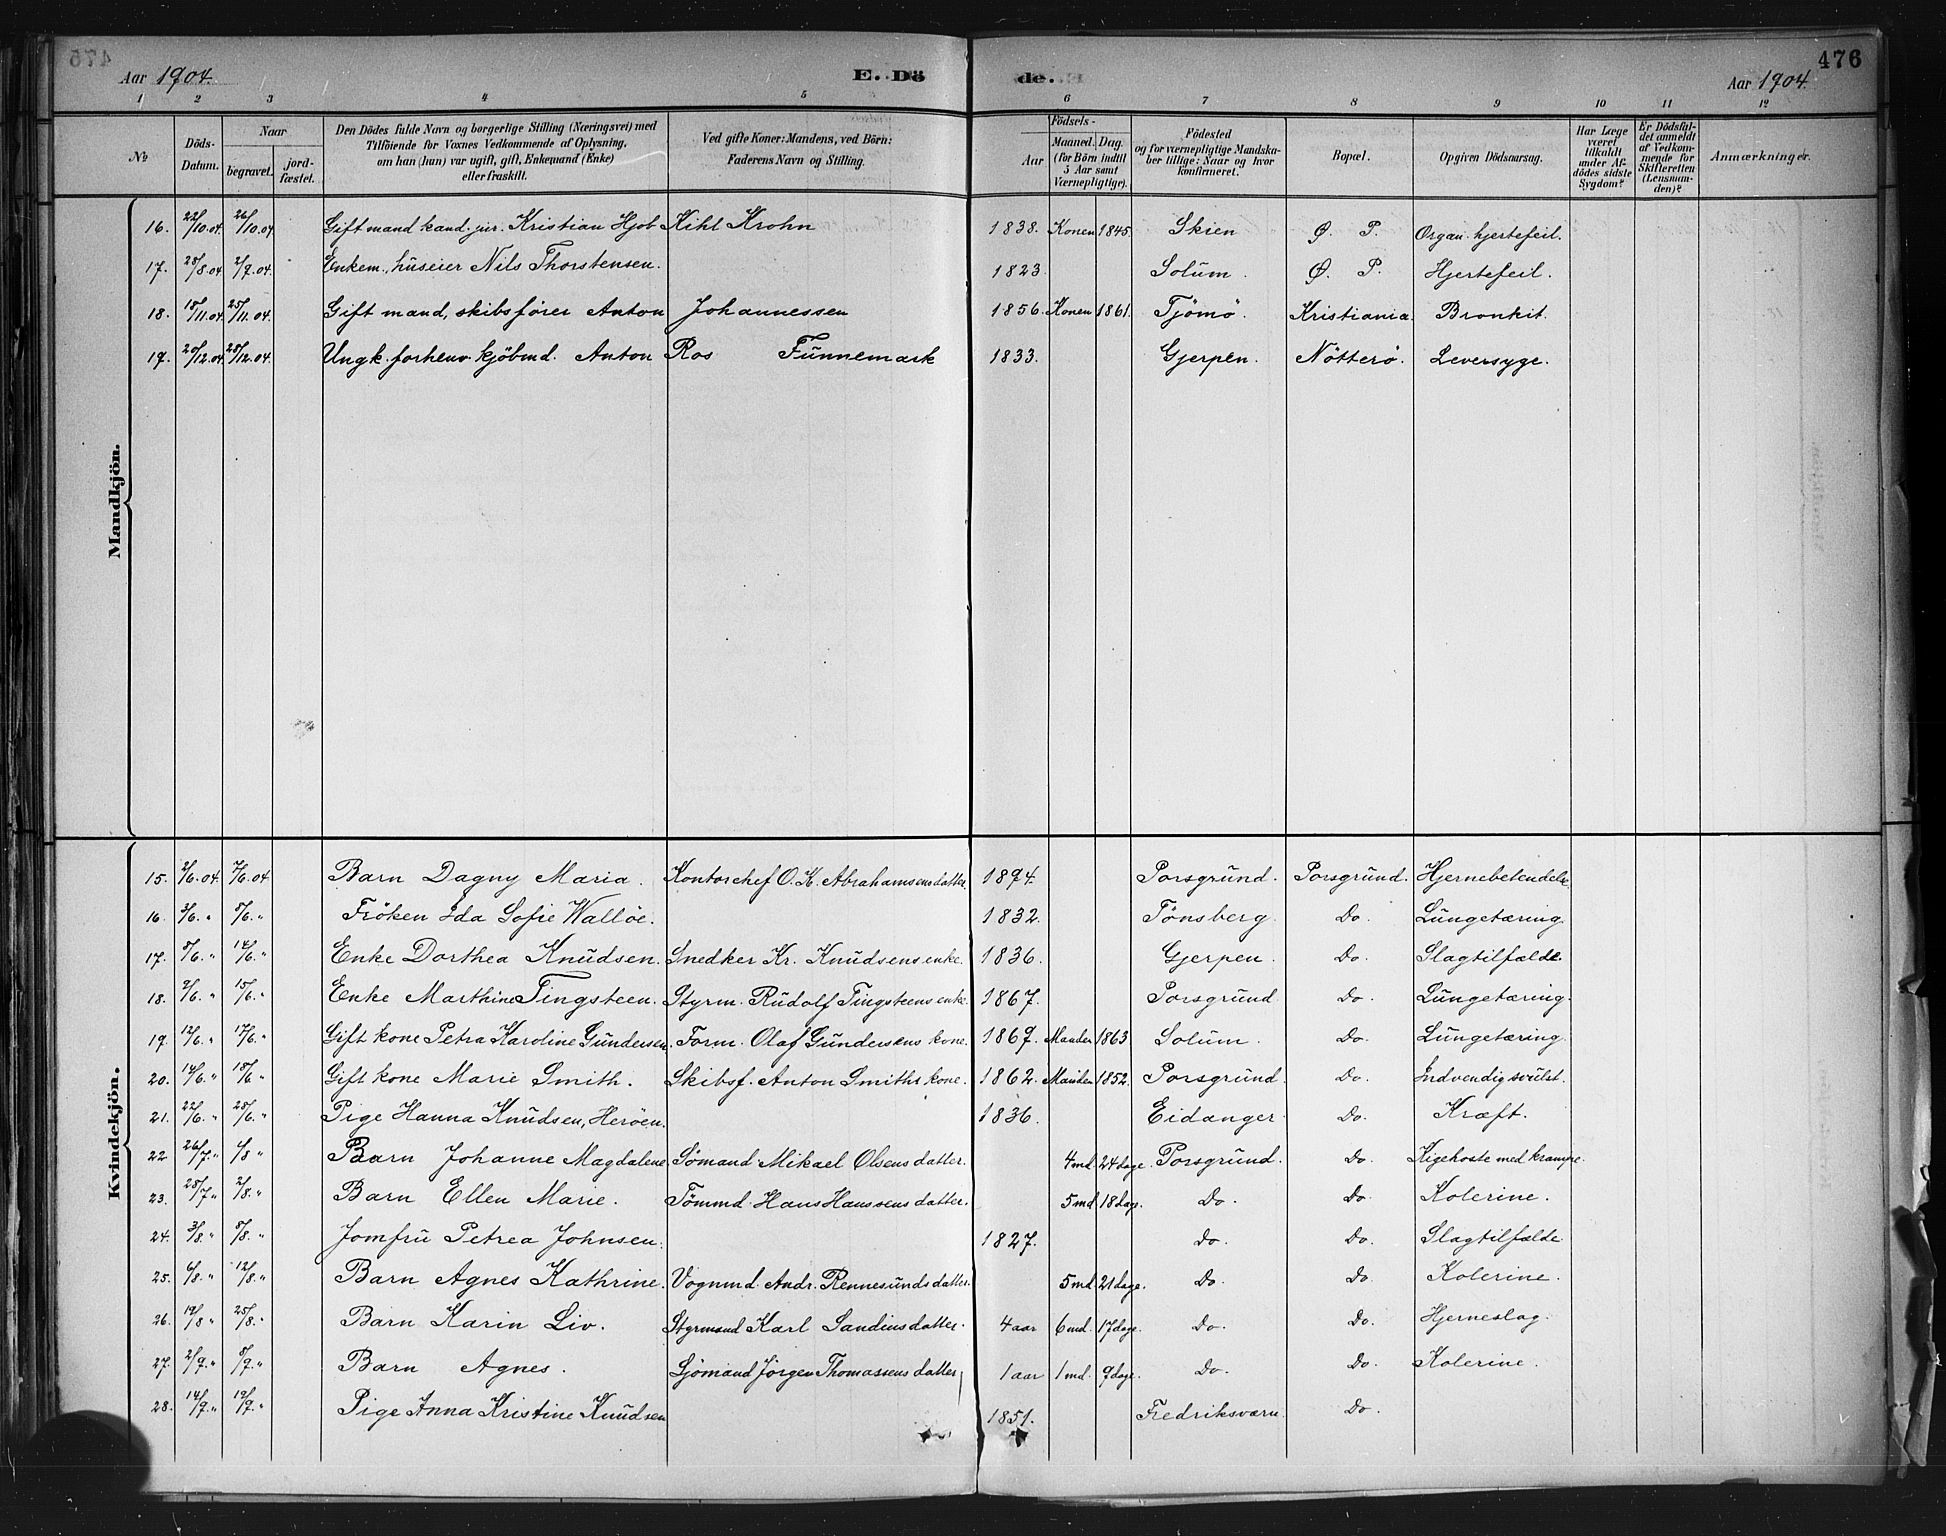 475
Aar 1904.
E. Döde.
476
Aar 1904.
1 2 3 4 5 6 7 8 9 10 11 12
No
Döds-Datum.
Naar
begravet.
jordfæstet.
Den Dödes fulde Navn og borgerlige Stilling (Næringsvei) med
Tilföiende for Voxnes Vedkommende af Oplysning,
om han (hun) var ugift, gift, Enkemand (Enke)
eller fraskilt.
Ved gifte Koner: Mandens, ved Börn:
Faderens Navn og Stilling.
Födsels-
Aar
Maaned. Dag.
(for Börn indtil
5 Aar samt
Værnepligtige).
Födested
og for værnepligtige Mandskaber tillige: Naar og hvor
konfirmeret.
Bopæl.
Opgiven Dödsaarsag.
Har Læge
været
tilkaldt
under Afdödes sidste
Sygdom?
Er Dödsfaldet anmeldt
af Vedkommende for
Skifteretten
(Lensmanden)?
Anmærkninger.
Mandkjön.
16. 22/10.04. 26/10.04 Gift mand kand. jur. Kristian Hjob Kihl Krohn 1838. Konen 1845. Skien Ø. P. Organ. hjertefeil.
17. 28/8.04. 2/9.04. Enkem., huseier Nils Thorstensen. 1823. Solum. Ø. P. Hjertefeil.
18. 18/11.04. 25/11.04. Gift mand, skibsfører Anton Johannessen 1856. Konen 1861. Tjömö. Kristiania. Bronkit.
19. 20/12.04. 28/12.04. Ungk. forhenv. kjöbmd. Anton Ros Funnemark 1833. Gjerpen. Nötterö. Leversyge.
Kvindekjön.
15. 2/6.04. 7/6.04 Barn Dagny Maria. Kontorchef O. K. Abrahamsens datter. 1894. Porsgrund. Porsgrund. Hjernebetendelse.
16. 3/6. " 8/6. " Fröken Ida Sofie Wallöe. 1832. Tönsberg. Do. Lungetæring.
17. 8/6. " 14/6. " Enke Dorthea Knudsen. Snedker Kr. Knudsens enke. 1836. Gjerpen. Do. Slagtilfælde.
18. 9/6. " 15/6. " Enke Marthine Tingsteen. Styrm. Rudolf Tingsteens enke. 1867. Porsgrund. Do. Lungetæring.
19. 12/6. " 17/6. " Gift kone Petra Karoline Gundersen. Form. Olaf Gundersens kone. 1869. Manden 1863 Solum. Do. Lungetæring.
20. 14/6. " 18/6. " Gift kone Marie Smith. Skibsf. Anton Smiths kone. 1862. Manden 1852. Porsgrund. Do. Indvendig svulst.
21. 22/6. " 28/6. " Pige Hanna Knudsen, Heröen. 1836. Eidanger. Do. Kræft.
22 26/7. " 4/8 " Barn Johanne Magdalene. Sömand Mikael Olsens datter. 4 md. 24 dage. Porsgrund. Do. Kigehoste med krampe.
23. 28/7. " 2/8. " Barn Ellen Marie. Tömmd. Hans Hanssens datter. 5 md. 18 dage. Do. Do. Kolerine.
24. 3/8. " 8/8. " Jomfru Petrea Johnsen. 1827. Do. Do. Slagtilfælde.
25. 6/8. " 12/8. " Barn Agnes Kathrine. Vognmd. Andr. Rennesunds datter. 5 md. 21 dage. Do. Do. Kolerine.
26. 19/8 " 25/8. " Barn Karin Liv. Styrmand Karl Sandins datter. 4 aar 6 md. 17 dage. Do. Do. Hjerneslag.
27. 2/9. " 8/9. " Barn Agnes. Sjömand Jörgen Thomassens datter 1 aar 1 md. 9 dage. Do. Do. Kolerine.
28. 14/9. " 19/9. " Pige Anna Kristine Knudsen 1851. Fredriksværn. Do.